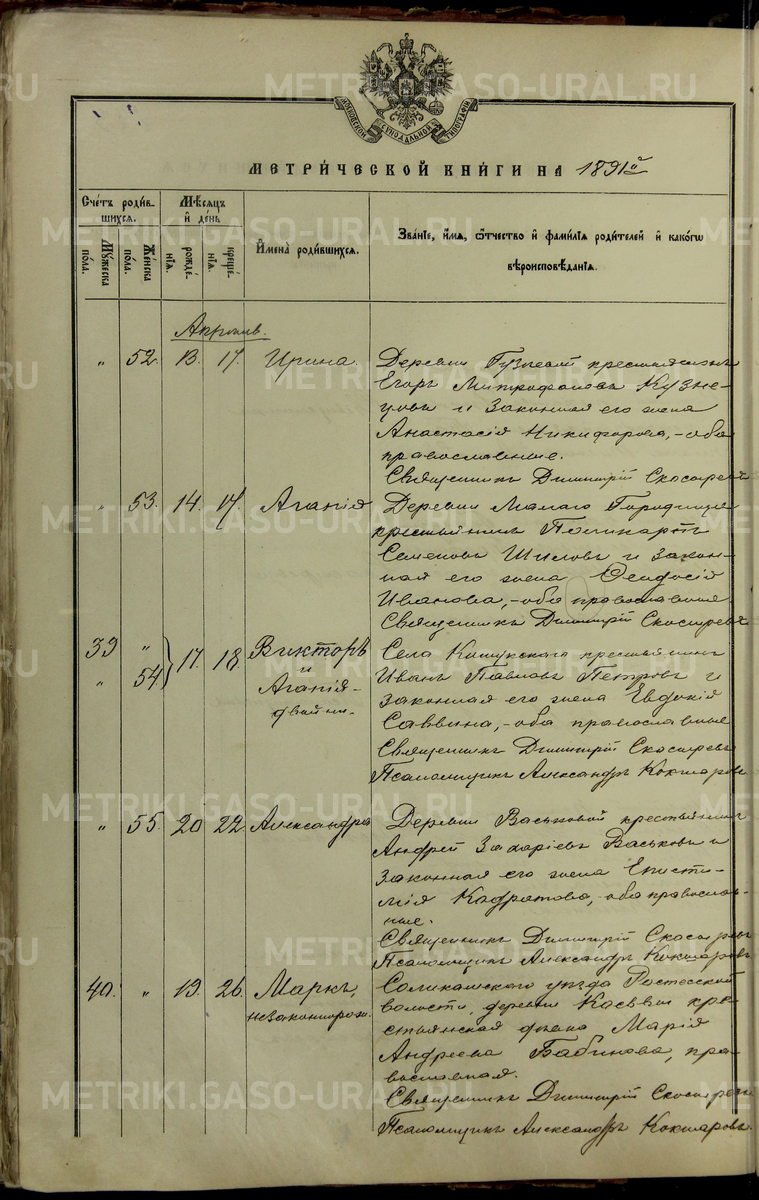 METRIKI.GASO-URAL.RU
МОСКОВСКОЙ СѴНОДАЛЬНОЙ ТИПОГРАФІИ
МЕТРИ́ЧЕСКОЙ КНИ́ГИ НА 1891й
Сче́тъ роди́вшихся.
Мꙋ́жеска по́ла.
Же́нска по́ла.
Мѣ́сяцъ и҆ де́нь
рожде́нїѧ.
креще́нїѧ.
И҆мена̀ роди́вшихсѧ.
Зва́нїе, и҆́мѧ, ѻ҆́тчество и҆ фами́лїѧ роди́телей и҆ како́гѡ
вѣроисповѣ́данїѧ.
Апрѣль.
" 52. 13. 17. Ирина.
Деревни крестьянинъ
Егоръ Митрофановъ Кузне-
цовъ и законная его жена
Анастасія Никифорова, - оба
православные.
Священникъ Димитрій Скосыревъ
" 53. 14. 17. Агапія
Деревни Малаго Городища
крестьянинъ
Семеновъ Шиловъ и закон-
ная его жена Ѳеодосія
Иванова, - оба православные
Священникъ Димитрій Скосыревъ
39 "
" 54. 17. 18. Викторъ
и
Агапія -
двойни.
Села Кошукскаго крестьянинъ
Иванъ Павловъ Петровъ и
законная его жена Евдокія
Саввина, - оба православные
Священникъ Димитрій Скосыревъ
Псаломщикъ Александръ Кокшаровъ
" 55. 20 22. Александра
Деревни Васьковой крестьянинъ
Андрей Захаріевъ Васьковъ и
законная его жена Еписти-
мія Кодратова, - оба православ-
ные.
Священникъ Димитрій Скосыревъ
Псаломщикъ Александръ Кокшаровъ
40. " 19. 26. Маркъ,
незаконнорож.
Соликамскаго уѣзда Ростесской
волости, деревни Косьвы кре-
стьянская дѣвка Марія
Андреева Бабинова, пра-
вославная.
Священникъ Димитрій Скосыревъ
Псаломщикъ Александръ Кокшаровъ